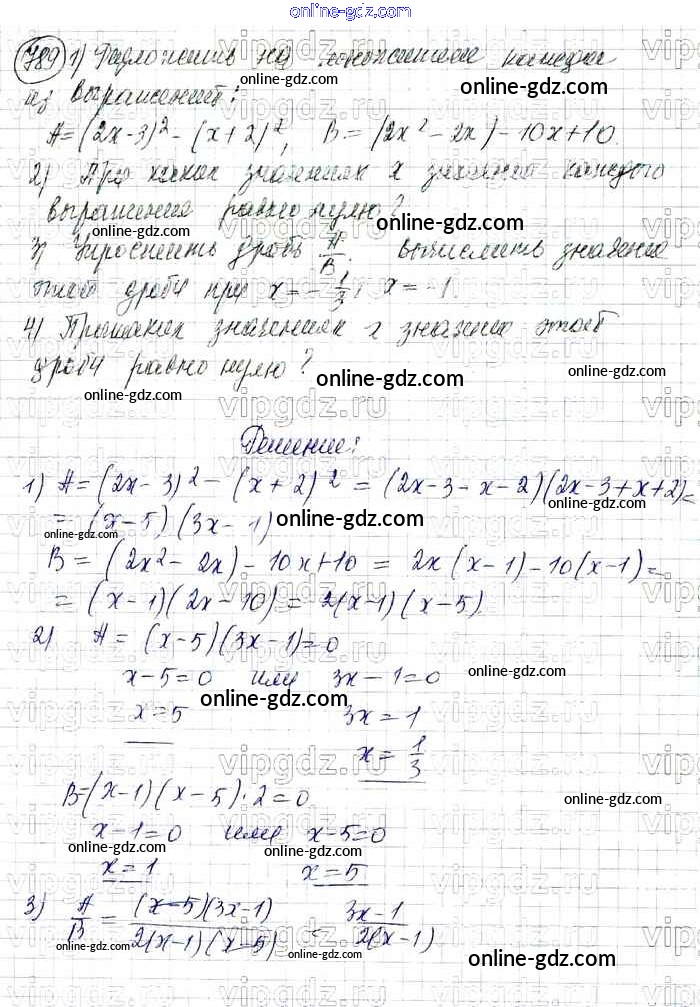 online-gdz.com
789 1) Разложить на множители каждое
из выражений:
A=(2x-3)²-(x+2)², B=(2x²-2x)-10x+10.
2) При каких значениях x значение каждого
выражения равно нулю?
3) Упростить дробь A/B. вычислить значение
этой дроби при x=-1/3; x=-1.
4) При каких значениях x значение этой
дроби равно нулю?
Решение:
1) A=(2x-3)²-(x+2)²=(2x-3-x-2)(2x-3+x+2)=
=(x-5)(3x-1)
B=(2x²-2x)-10x+10=2x(x-1)-10(x-1)=
=(x-1)(2x-10)=2(x-1)(x-5)
2) A=(x-5)(3x-1)=0
x-5=0 или 3x-1=0
x=5 3x=1
x=1/3
B=(x-1)(x-5)·2=0
x-1=0 или x-5=0
x=1 x=5
3) A/B=(x-5)(3x-1)/2(x-1)(x-5) = 3x-1/2(x-1)